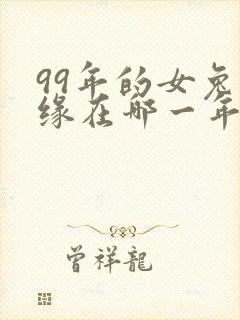 99年的女兔
缘在哪一年
曾祥龍